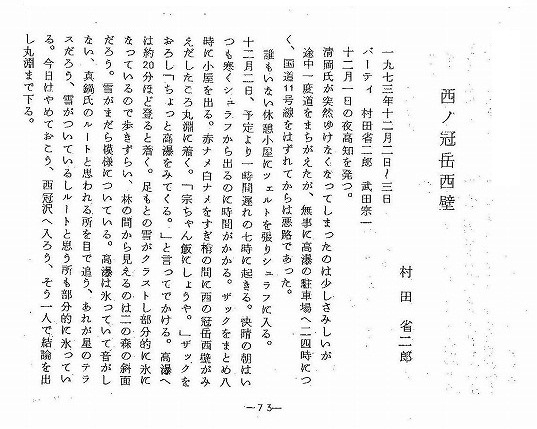 西ノ冠岳西壁
村田　省二郎
一九七三年十二月二日〜三日
パーティ　村田省二郎　武田宗一
十二月一日の夜高知を発つ。
清岡氏が突然ゆけなくなってしまったのは少しさみしいが
途中一度道をまちがえたが、無事に高瀑の駐車場へ二四時につ
く、国道11号線をはずれてからは悪路であった。
誰もいない休憩小屋にツェルトを張りシュラフに入る。
十二月二日、予定より一時間遅れの七時に起きる。快晴の朝はい
つも寒くシュラフから出るのに時間がかかる。ザックをまとめ八
時に小屋を出る。赤ナメ白ナメをすぎ梢の間に西の冠岳西壁がみ
えだしたころ丸淵に着く。「宗ちゃん飯にしようや。」ザックを
おろし「ちょっと高瀑をみてくる。」と言ってでかける。高瀑へ
は約20分ほど登ると着く。足もとの雪がクラストし部分的に氷に
なっているので歩きずらい、林の間から見えるのは二の森の斜面
だろう。雪がまだら模様についている。高瀑は氷っていて音がし
ない、真鍋氏のルートと思われる所を目で追う、あれが星のテラ
スだろう、雪がついているしルートと思う所も部分的に氷ってい
る。今日はやめておこう、西冠沢へ入ろう、そう一人で結論を出
し丸淵まで下る。
—73—